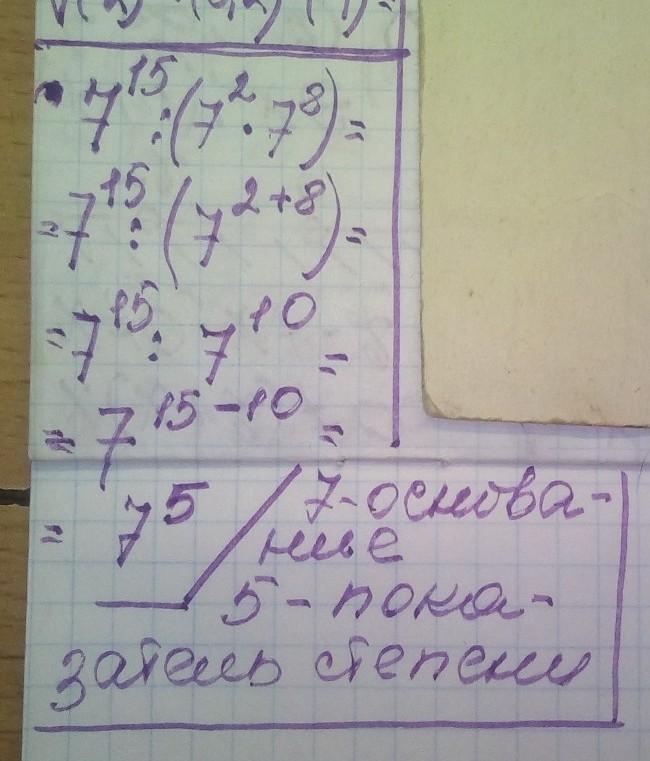 7¹⁵ : (7² · 7⁸) =
= 7¹⁵ : (7²⁺⁸) =
= 7¹⁵ : 7¹⁰ =
= 7¹⁵⁻¹⁰ =
= 7⁵ / 7-основа-
ние
5 - пока-
затель степени